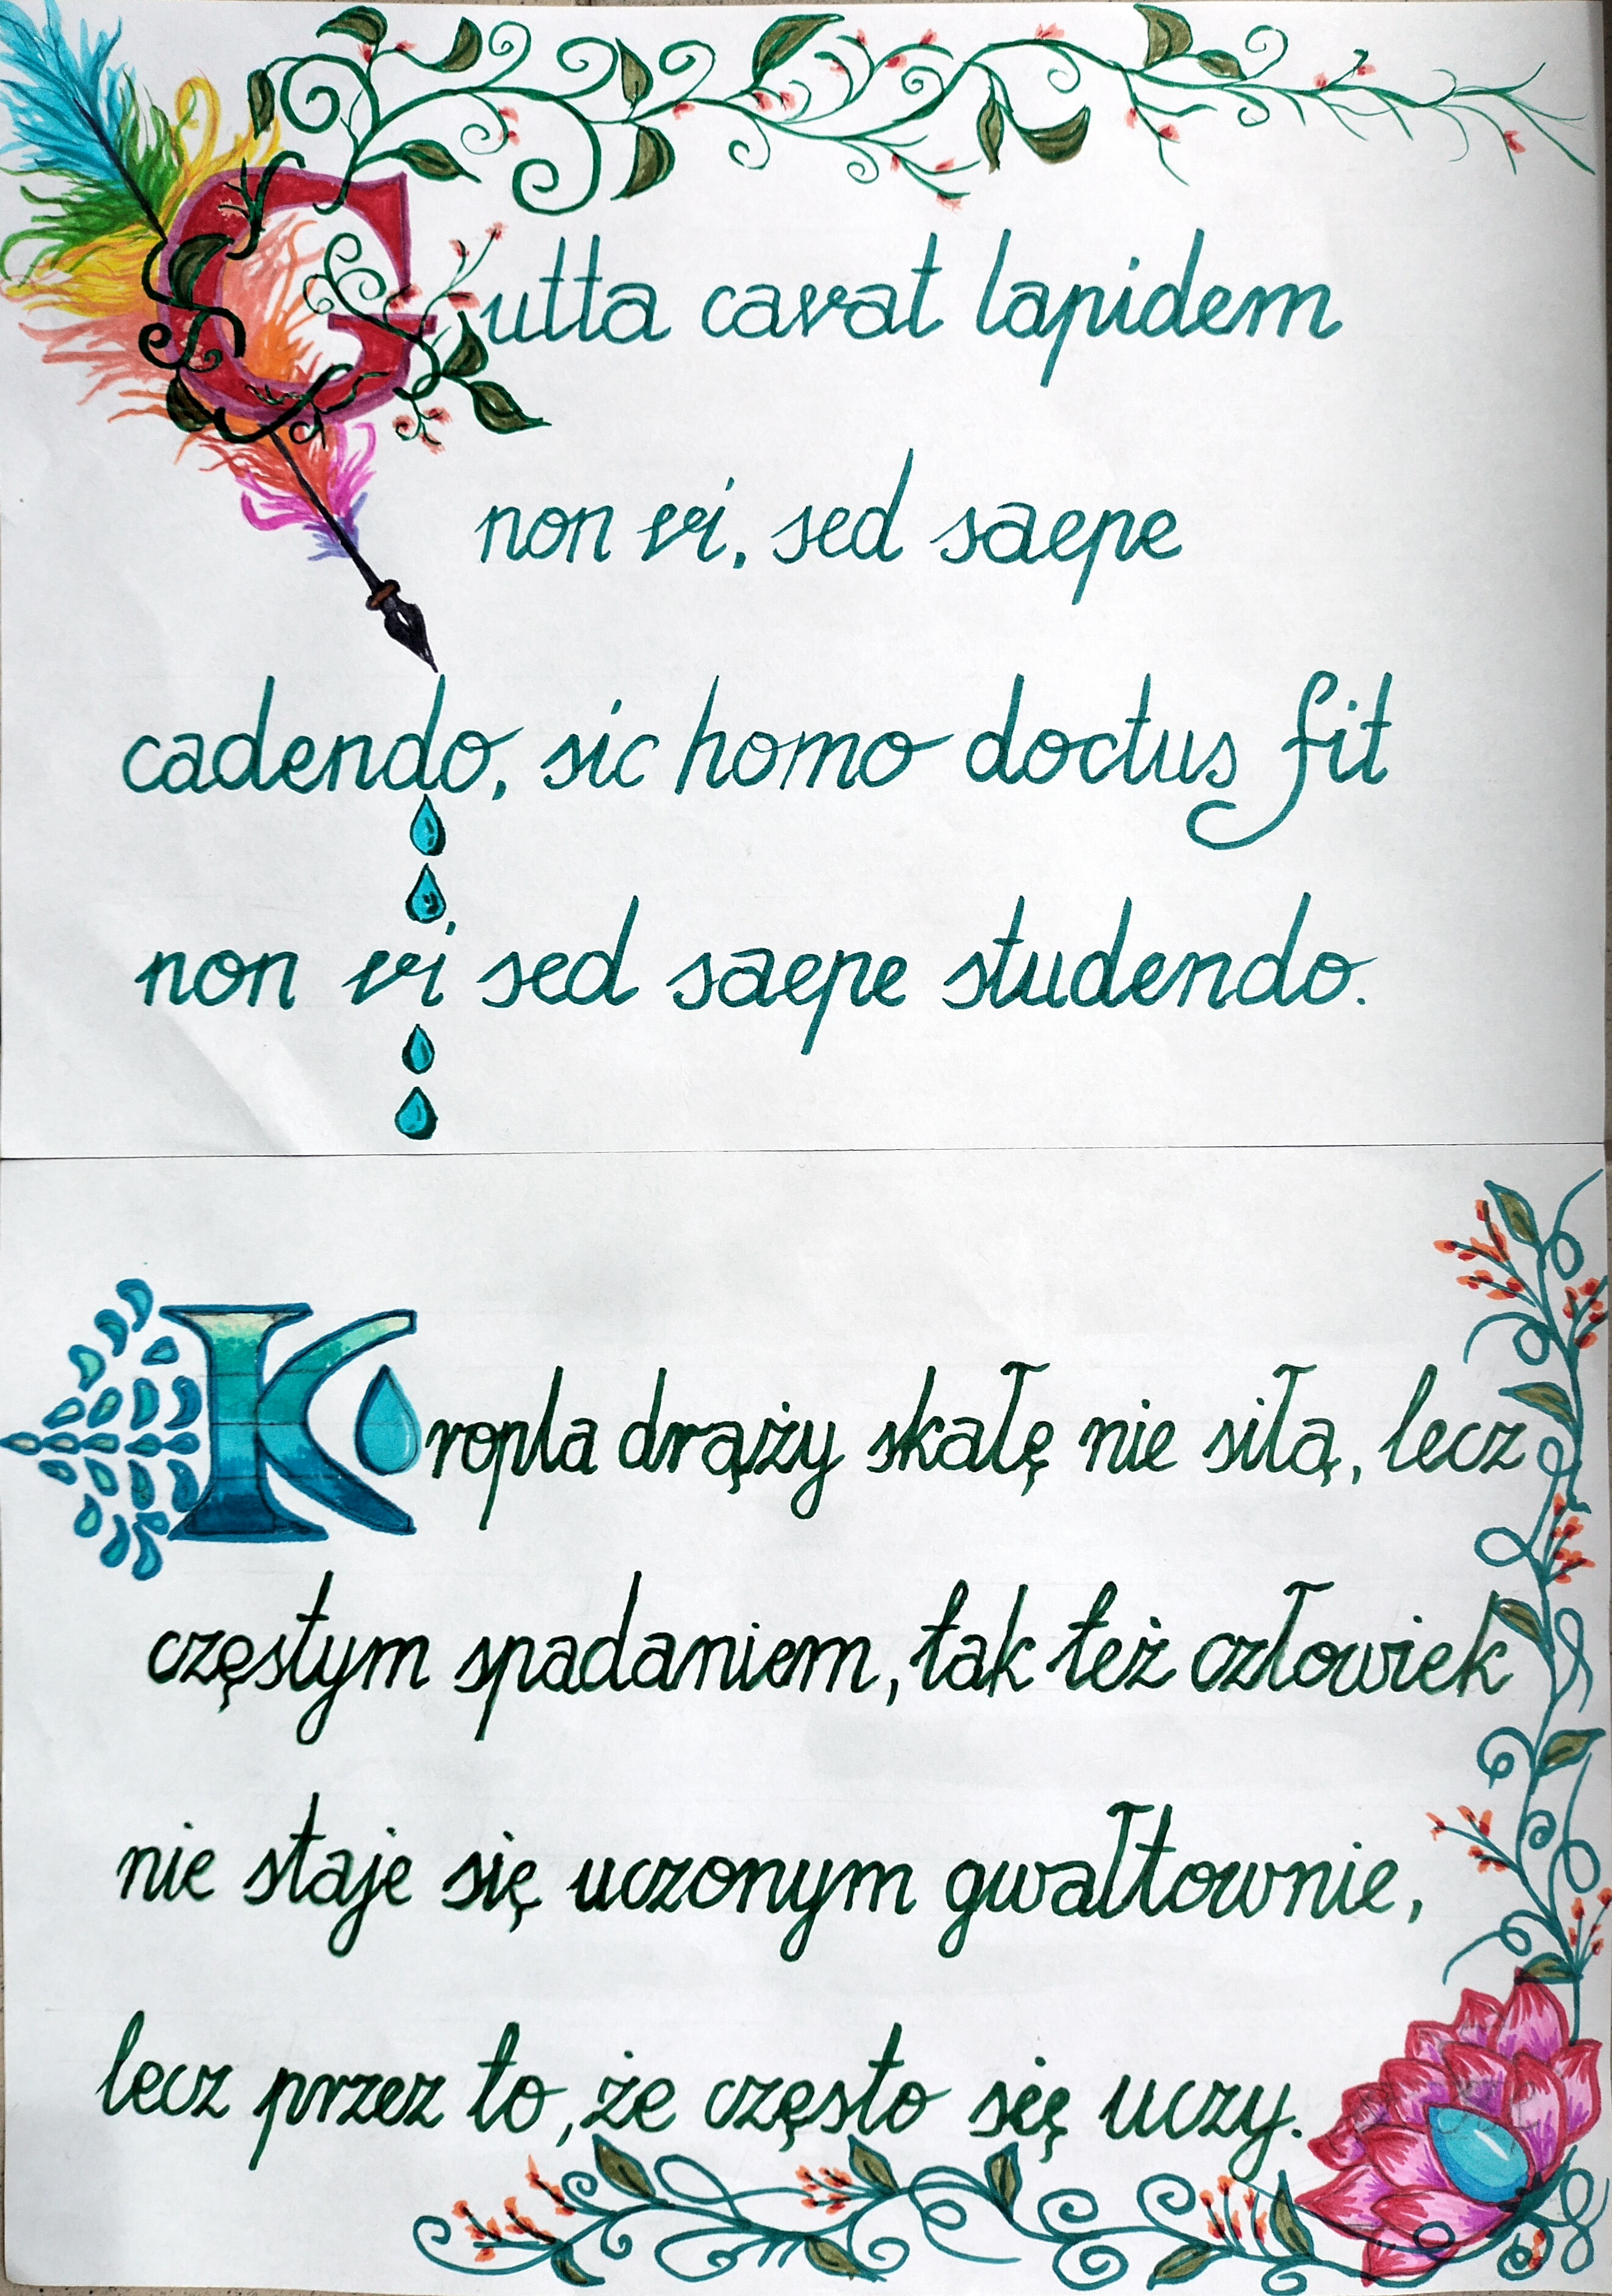 Gutta cavat lapidem
non vi, sed saepe
cadendo, sic homo doctus fit
non vi, sed saepe studendo.
Kropla drąży skałę nie siłą, lecz
częstym spadaniem, tak też człowiek
nie staje się uczonym gwałtownie,
lecz przez to, że często się uczy.